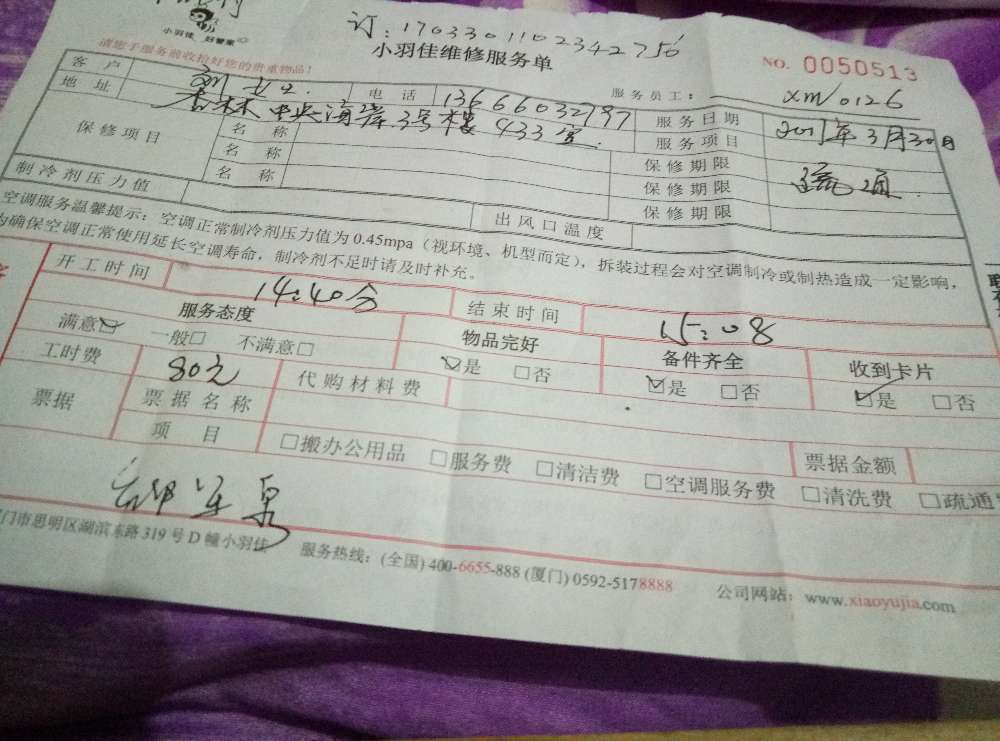 小羽佳 好管家
订:1703301102342756
小羽佳维修服务单
NO. 0050513
请您于服务前收拾好您的贵重物品!
服务员工: xm/0126
客户 刘女士 电话 13666032797 服务日期 2017年3月30日
地址 杏林中央海岸3号楼433室 服务项目 疏通
保修项目 名称 保修期限
名称 保修期限
名称 保修期限
制冷剂压力值 出风口温度
空调服务温馨提示:空调正常制冷剂压力值为0.45mpa(视环境、机型而定),拆装过程会对空调制冷或制热造成一定影响,
为确保空调正常使用延长空调寿命,制冷剂不足时请及时补充。
开工时间 14:40分 结束时间 15:08
服务态度 物品完好 备件齐全 收到卡片
满意☑ 一般□ 不满意□ ☑是 □否 ☑是 □否 ☑是 □否
工时费 80元 代购材料费
票据 票据名称 票据金额
项目 □搬办公用品 □服务费 □清洁费 □空调服务费 □清洗费 □疏通
门市思明区湖滨东路319号D幢小羽佳 服务热线:(全国) 400-6655-888 (厦门) 0592-5178888 公司网站:www.xiaoyujia.com